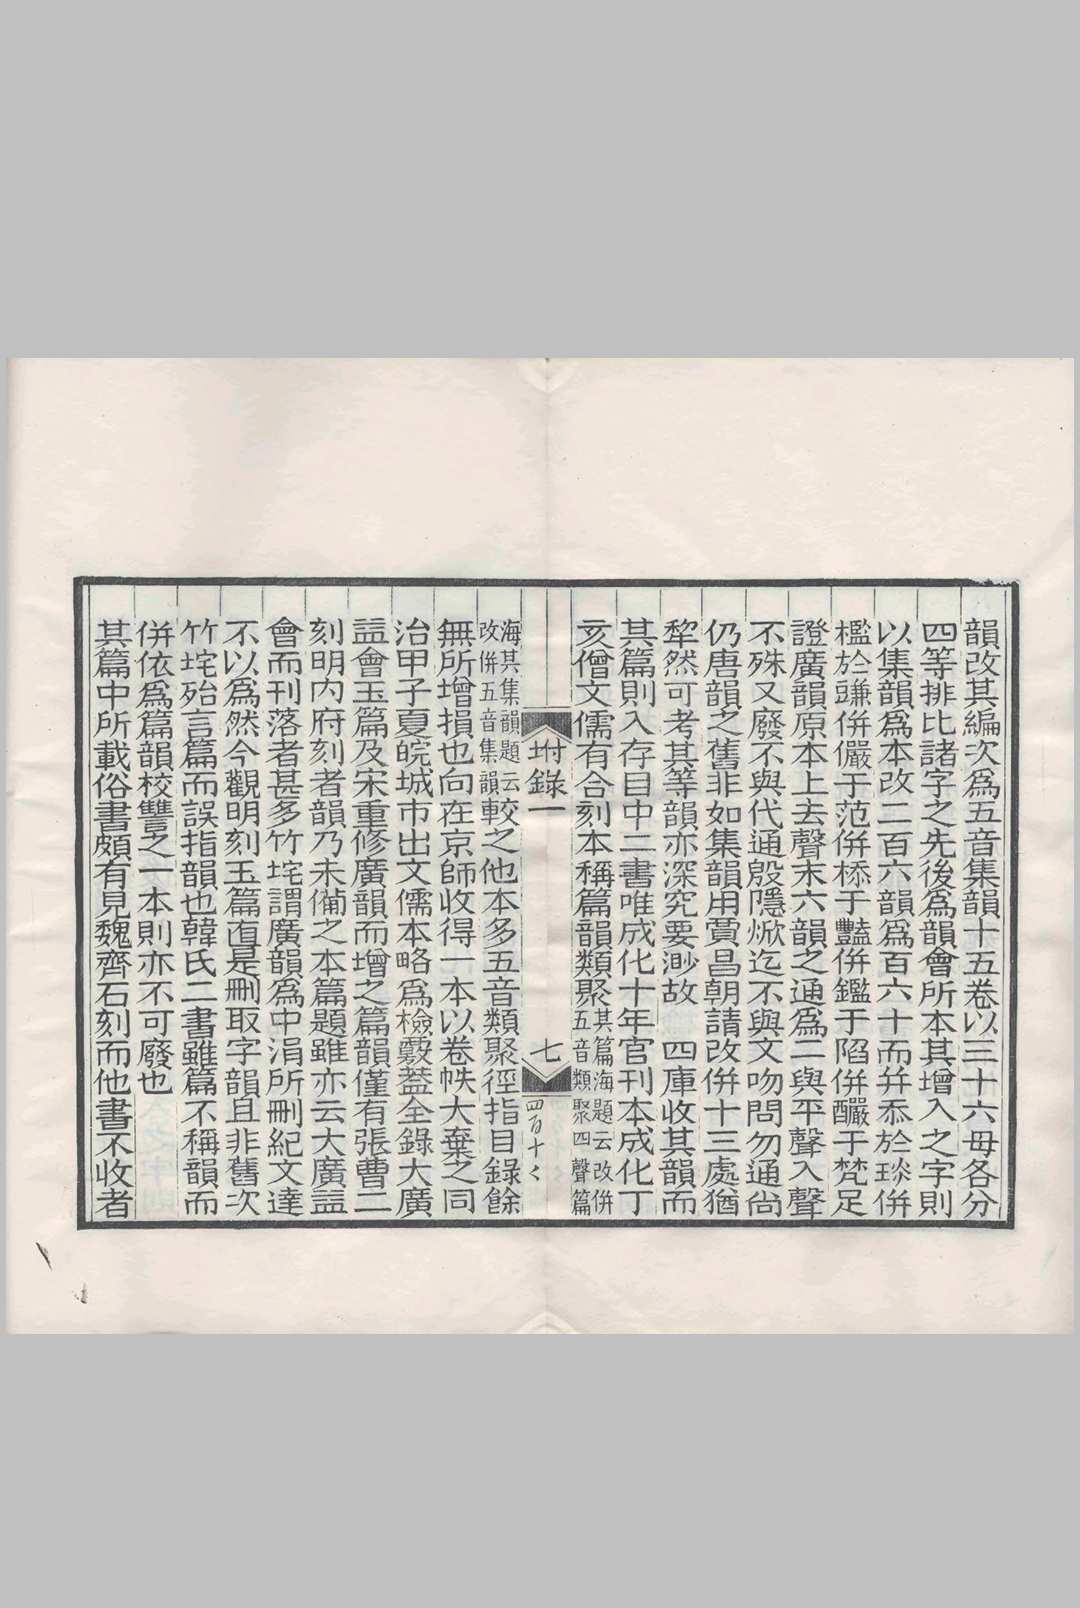 韻改其編次爲五音集韻十五卷以三十六母各分
四等排比諸字之先後爲韻會所本其增入之字則
以集韻爲本改二百六韻爲百六十而幷忝於琰併
檻於豏併儼于范併㮇于豔併鑑于陷併釅于梵足
證廣韻原本上去聲末六韻之通爲二與平聲入聲
不殊又廢不與代通殷隱焮迄不與文吻問勿通尙
仍唐韻之舊非如集韻用賈昌朝請改併十三處猶
犂然可考其等韻亦深究要渺故 四庫收其韻而
其篇則入存目中二書唯成化十年官刊本成化丁
亥僧文儒有合刻本稱篇韻類聚其篇海題云改併
五音類聚四聲篇
海其集韻題云
改併五音集韻較之他本多五音類聚徑指目錄餘
無所增損也向在京師收得一本以卷帙大棄之同
治甲子夏皖城市出文儒本略爲檢覈葢全錄大廣
益會玉篇及宋重修廣韻而增之篇韻僅有張曹二
刻明內府刻者韻乃未備之本篇題雖亦云大廣益
會而刊落者甚多竹垞謂廣韻爲中涓所刪紀文達
不以爲然今觀明刻玉篇直是刪取字韻且非舊次
竹垞殆言篇而誤指韻也韓氏二書雖篇不稱韻而
併依爲篇韻校讐之一本則亦不可廢也
其篇中所載俗書頗有見魏齊石刻而他書不收者
附錄一
七
四百十